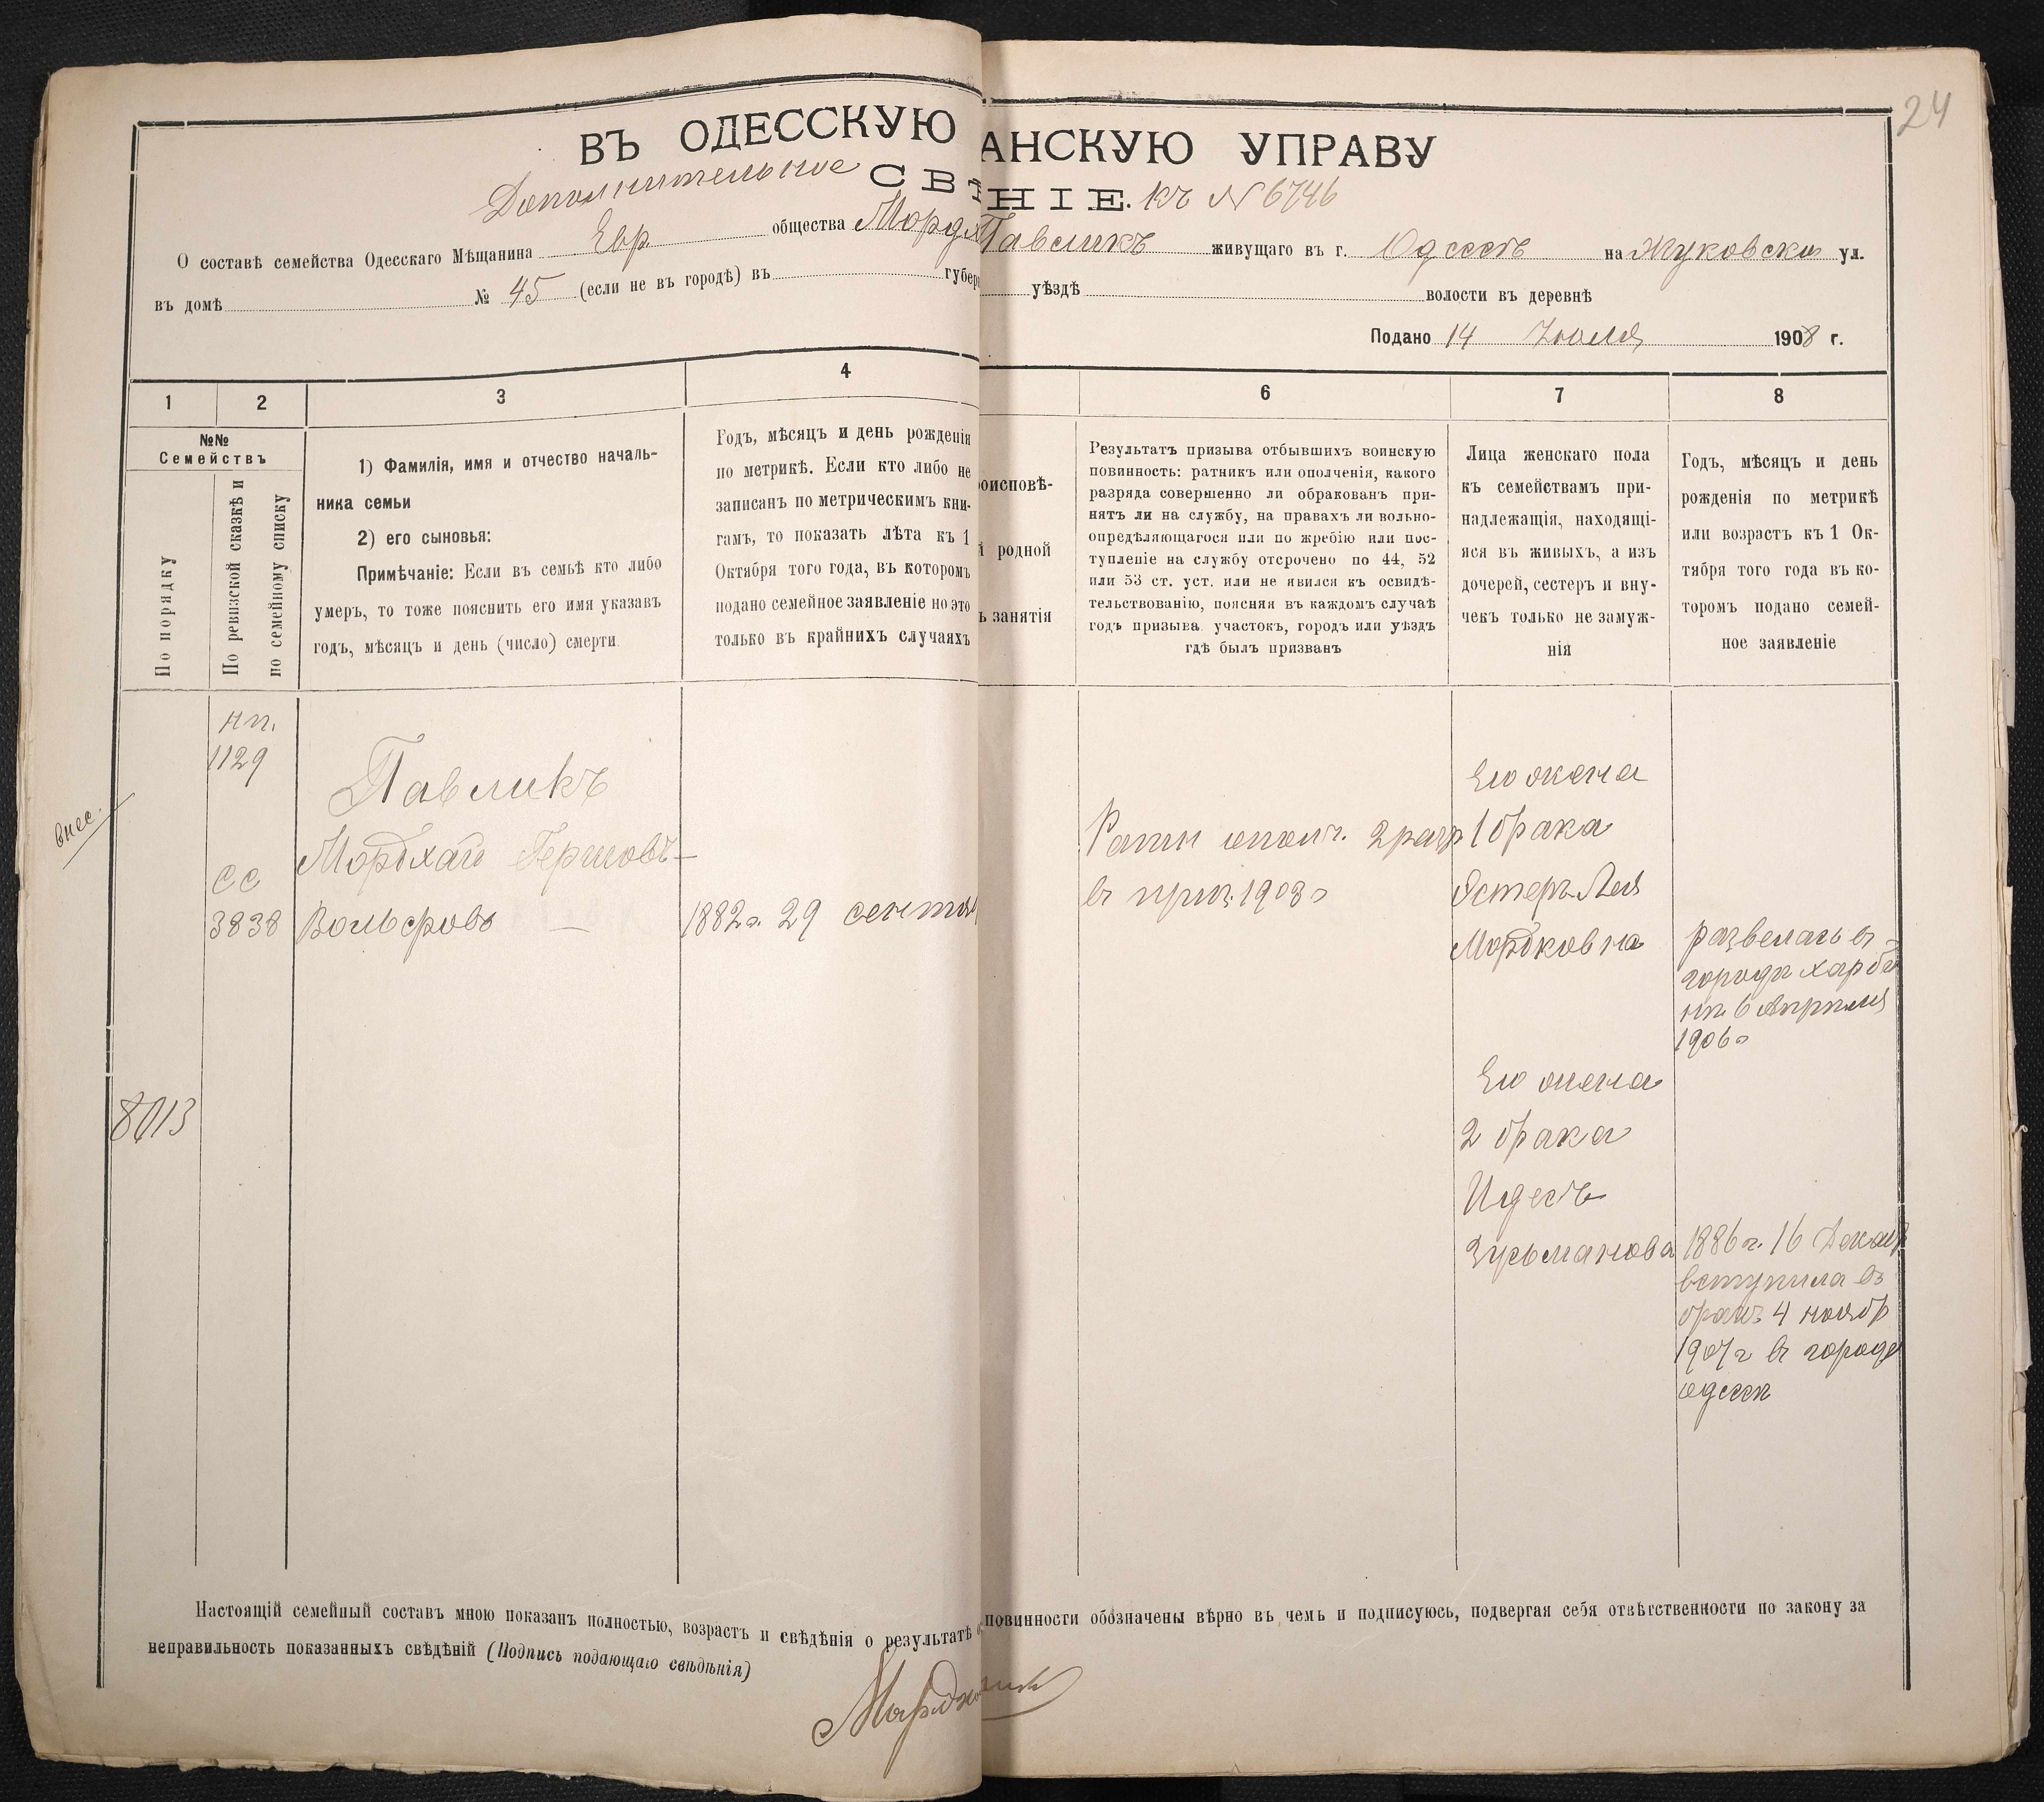 24
ВЪ ОДЕССКУЮ АНСКУЮ УПРАВУ
Дополнительное СВѢ НІЕ. къ N 6746
О составѣ семейства Одесскаго Мѣщанина Евр. общества Мордх Павликъ живущаго въ г. Одессѣ на Жуковской ул.
въ домѣ № 45 (если не въ городѣ) въ губер уѣздѣ волости въ деревнѣ
Подано 14 Июля 1908 г.
1 2 3 4 6 7 8
№№
Семействъ
По порядку
По ревизской сказкѣ и
по семейному списку
1) Фамилія, имя и отчество началь-
ника семьи
2) его сыновья:
Примѣчаніе: Если въ семьѣ кто либо
умеръ, то тоже пояснить его имя указавъ
годъ, мѣсяцъ и день (число) смерти.
Годъ, мѣсяцъ и день рожденія
по метрикѣ. Если кто либо не
записанъ по метрическимъ кни-
гамъ, то показать лѣта къ 1
Октября того года, въ которомъ
подано семейное заявленіе но это
только въ крайнихъ случаяхъ
роисповѣ-
й родной
ъ занятія
Результатъ призыва отбывшихъ воинскую
повинность: ратникъ или ополченія, какого
разряда совершенно ли обракованъ при-
нятъ ли на службу, на правахъ ли вольно-
опредѣляющагося или по жребію или пос-
тупленіе на службу отсрочено по 44, 52
или 53 ст. уст. или не явился къ освидѣ-
тельствованію, поясняя въ каждомъ случаѣ
годъ призыва. участокъ, городъ или уѣздъ
гдѣ былъ призванъ
Лица женскаго пола
къ семействамъ при-
надлежащія, находящі-
яся въ живыхъ, а изъ
дочерей, сестеръ и вну-
чекъ только не замуж-
нія
Годъ, мѣсяцъ и день
рожденія по метрикѣ
или возрастъ къ 1 Ок-
тября того года въ ко-
торомъ подано семей-
ное заявленіе
внес.
нп.
1129
сс
3838
8013
Павликъ
Мордхай Гершовъ-
Вольфовъ
1882 г. 29 сентя
Ратн ополч. 2 разр
въ приз. 1903 г
Его жена
1 брака
Эстеръ-Лея
Мордковна
развелась в
городѣ Харби-
нѣ 6 Апрѣля
1906 г
Его жена
2 брака
Идесъ
Зусьманова
1886 г. 16 Декаб
вступила въ
бракъ 4 ноябр
1907 г въ городѣ
одессѣ
Настоящій семейный составъ мною показанъ полностью, возрастъ и свѣдѣнія о результатѣ о повинности обозначены вѣрно въ чемъ и подписуюсь, подвергая себя отвѣтственности по закону за
неправильность показанныхъ свѣдѣній (Подпись подающаго свѣдѣнія)